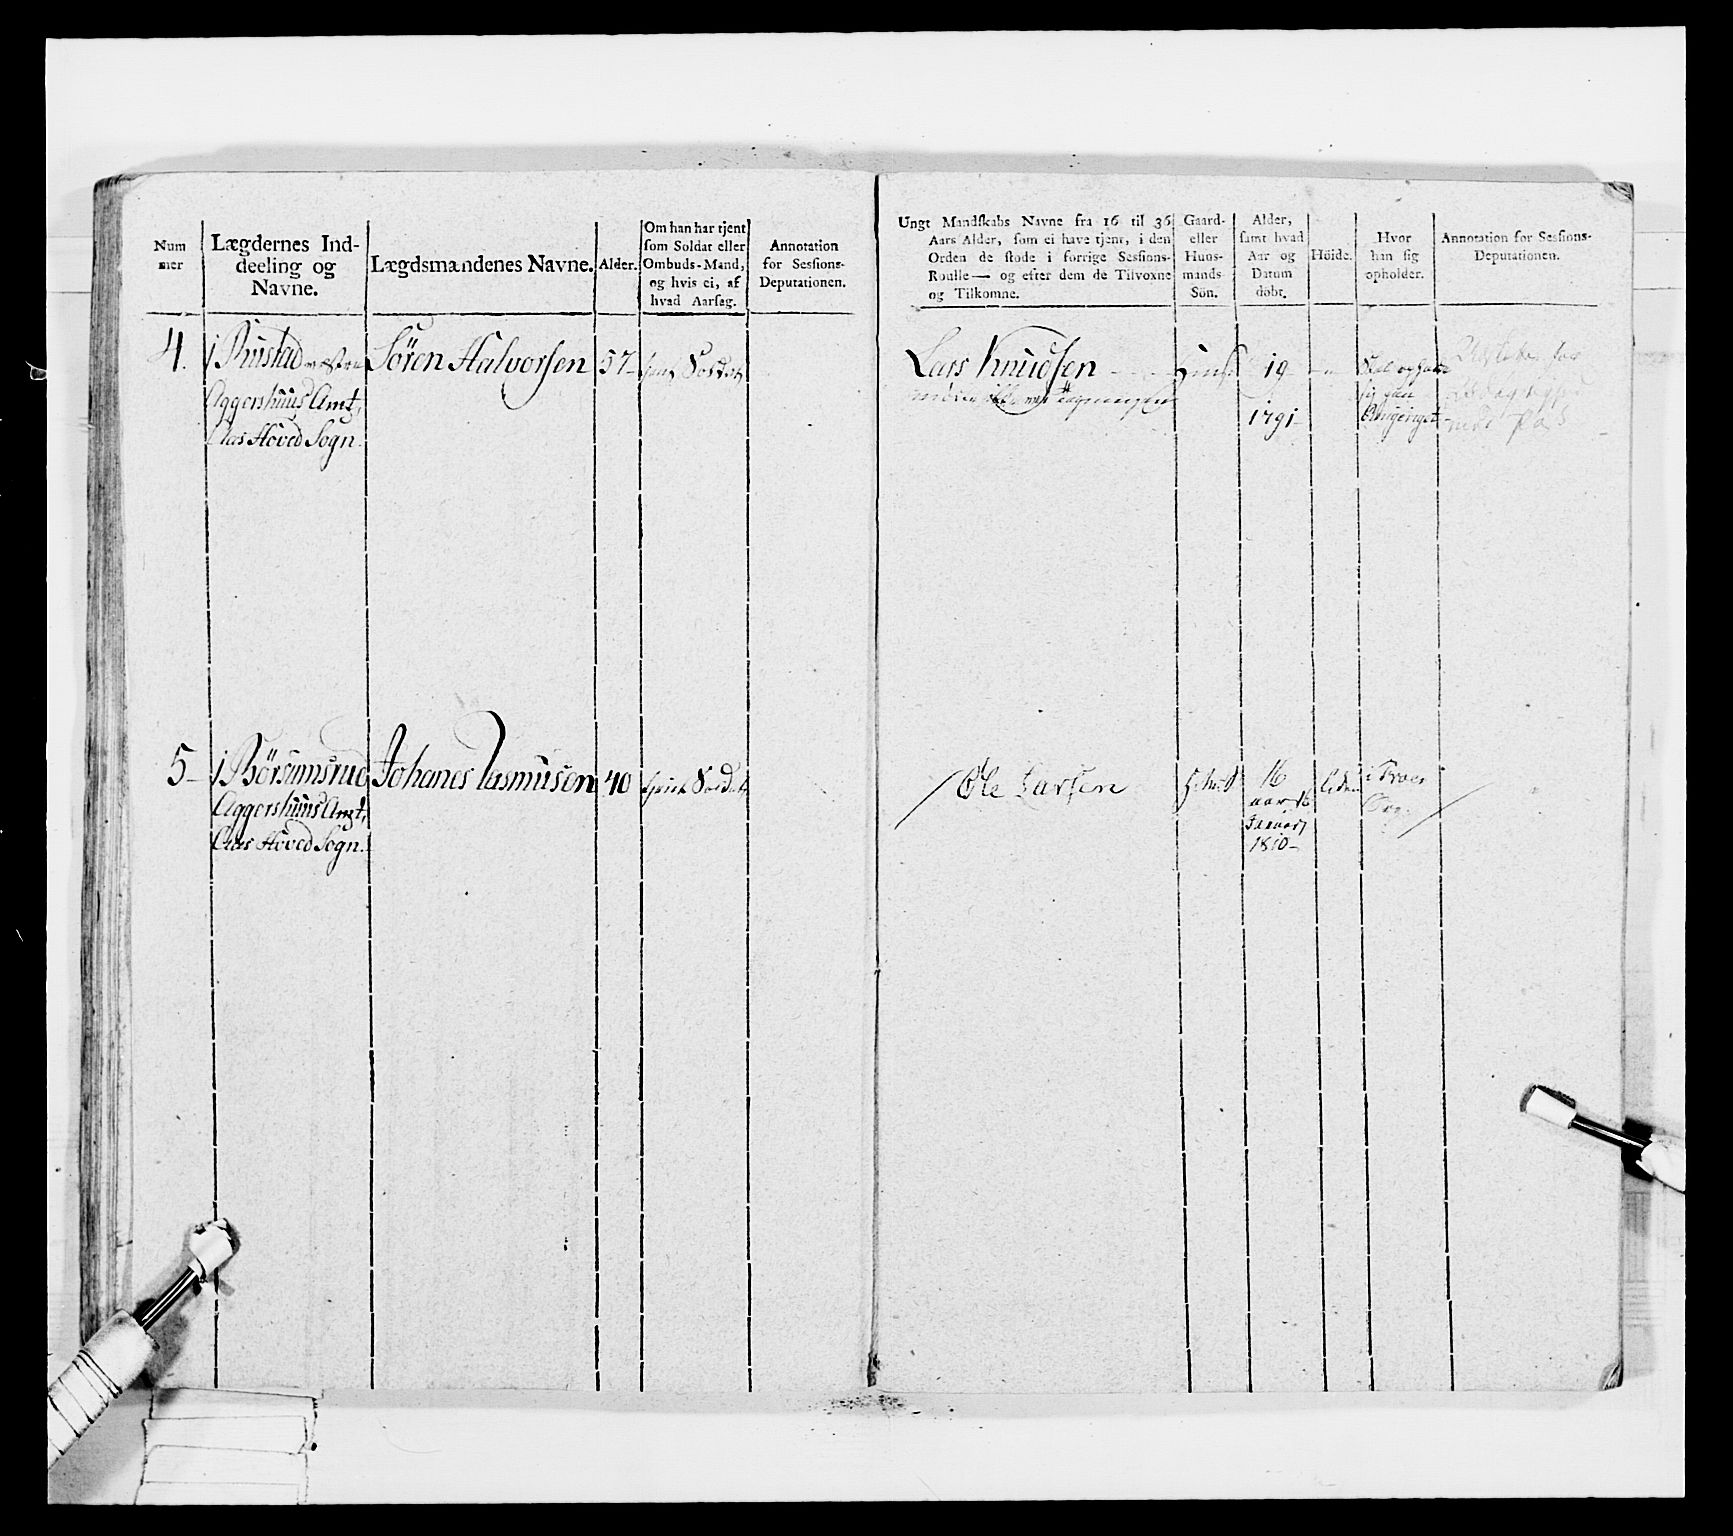 Num
mer
Lægdernes Ind-
deeling og
Navne.
Lægdsmændenes Navne.
Alder.
Om han har tjent
som Soldat eller
Ombuds-Mand,
og hvis ei, af
hvad Aarsag.
Annotation
for Sessions-
Deputationen.
Ungt Mandskabs Navne fra 16 til 36
Aars Alder, som ei have tjent, i den
Orden de stode i forrige Sessions-
Roulle — og efter dem de Tilvoxne
og Tilkomne.
Gaard-
eller
Huus-
mands-
Sön.
Alder,
samt hvad
Aar og
Datum
döbt.
Höide.
Hvor
han sig
opholder.
Annotation for Sessions-
Deputationen.
4.
1 Rustad
Aggershuus Amt,
Aas Hoved Sogn.
Sören Halvorsen
57
Soldat
Lars Knudsen
19
1791
5
1 Börsumsrud
Aggershuus Amt,
Aas Hoved Sogn.
Johanes Rasmusen
40
tjent Soldat
Ole Larsen
16
aar 16
Januarj
1810
liden